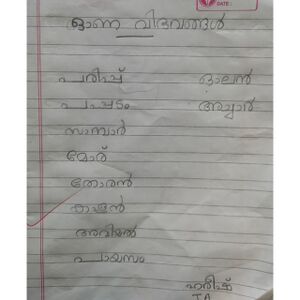 DATE :
ഓണ വിഭവങ്ങൾ
പരിപ്പ് ഓലൻ
പപ്പടം അച്ചാർ
സാമ്പാർ
മോര്
തോരൻ
കാളൻ
അവിയൽ
പായസം
ഹരീഷ്
IA